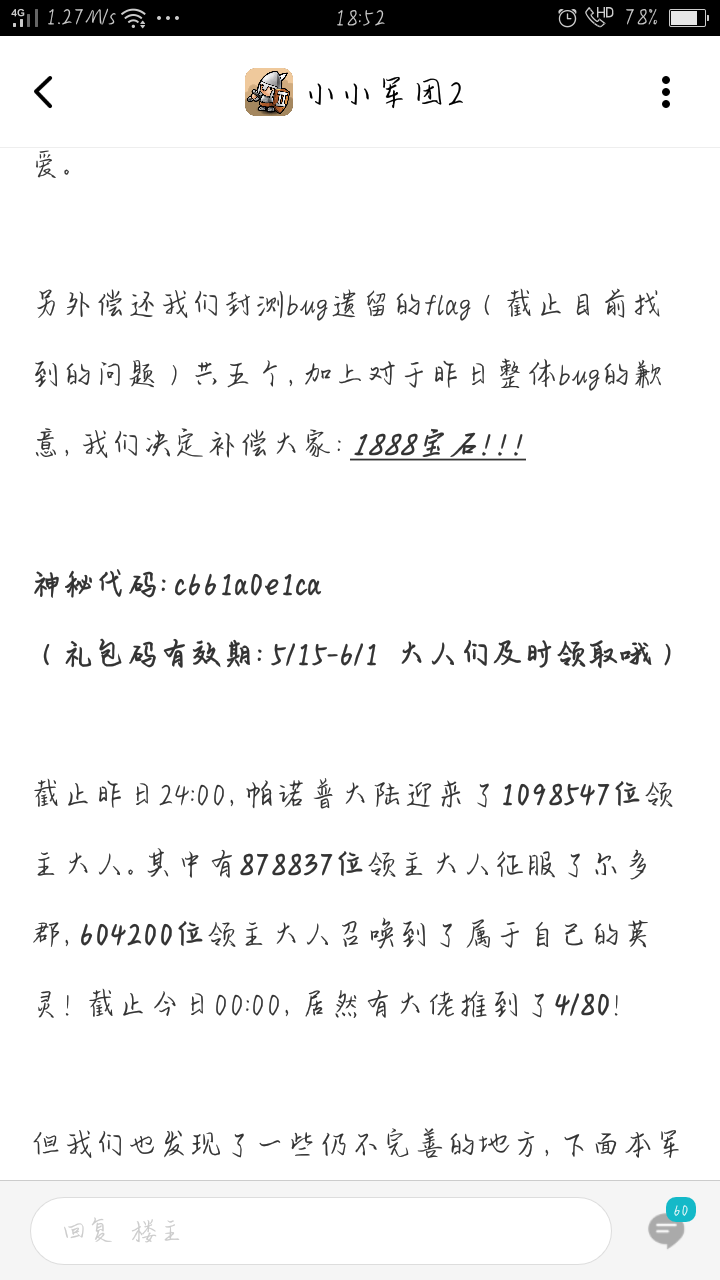 4G 1.27M/s 18:52 HD 78%
小小军团2
爱。
另外偿还我们封测bug遗留的flag(截止目前找
到的问题)共五个,加上对于昨日整体bug的歉
意,我们决定补偿大家:1888宝石!!!
神秘代码:c661a0e1ca
(礼包码有效期:5/15-6/1 大人们及时领取哦)
截止昨日24:00,帕诺普大陆迎来了1098547位领
主大人。其中有878837位领主大人征服了尔多
郡,604200位领主大人召唤到了属于自己的英
灵!截止今日00:00,居然有大佬推到了4/80!
但我们也发现了一些仍不完善的地方,下面本军
回复 楼主
60